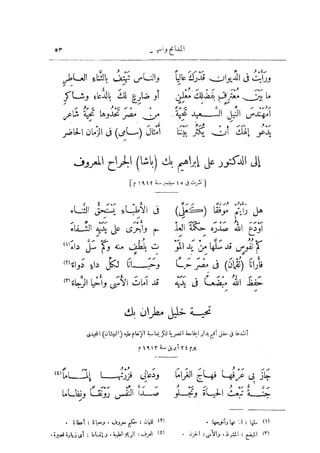 المدائح والتهـ ـ ٥٣
ورأيت في الديوان قدرك عالياً والناس تهتف بالثناء العاطر
ما بين معترف بفضلك معلن أو ضارع لك بالدعاء وشاكر
أمهندس النيل السعيد تحية من مصر تحدوها تحية شاعر
يدعو إلهك أن يكثر بيننا أمثال (سامي) في الزمان الحاضر
إلى الدكتور علي إبراهيم بك (باشا) الجراح المعروف
[نشرت في ١٥ سبتمبر سنة ١٩١٢م]
هل رأيتم موفقا (كعلي) في الأطباء يستحق الثناء
أودع الله صدره حكمة العلم وأجرى على يديه الشفاء
كم نفوس قد سلها من يد الموت بلطف منه وكم سل داء (١)
فأرانا (لقمان) في مصر حيا وحبانا لكل داء دواء (٢)
حفظ الله مبضعا في يديه قد أمات الأسى وأحيا الرجاء (٣)
تحية خليل مطران بك
أنشدها في حفل أقيم بدار الجامعة المصرية لتكريمه بمناسبة الإنعام عليه (بالنيشان) المجيدي
يوم ٢٤ أبريل سنة ١٩١٣م
جاز بي عرفها فهاج الغراما ودعاني فزرتها إلماما (٤)
جنة تبعث الحياة وتجلو صدأ النفس رونقا ونظاما
(١) سلها: انتزعها (٢) لقمان: حكيم معروف. وحبانا: أعطانا.
(٣) المبضع: المشرط. والأسى: الحزن. (٤) العرف: الريح الطيبة. وإلماما: أي زيارة قصيرة.